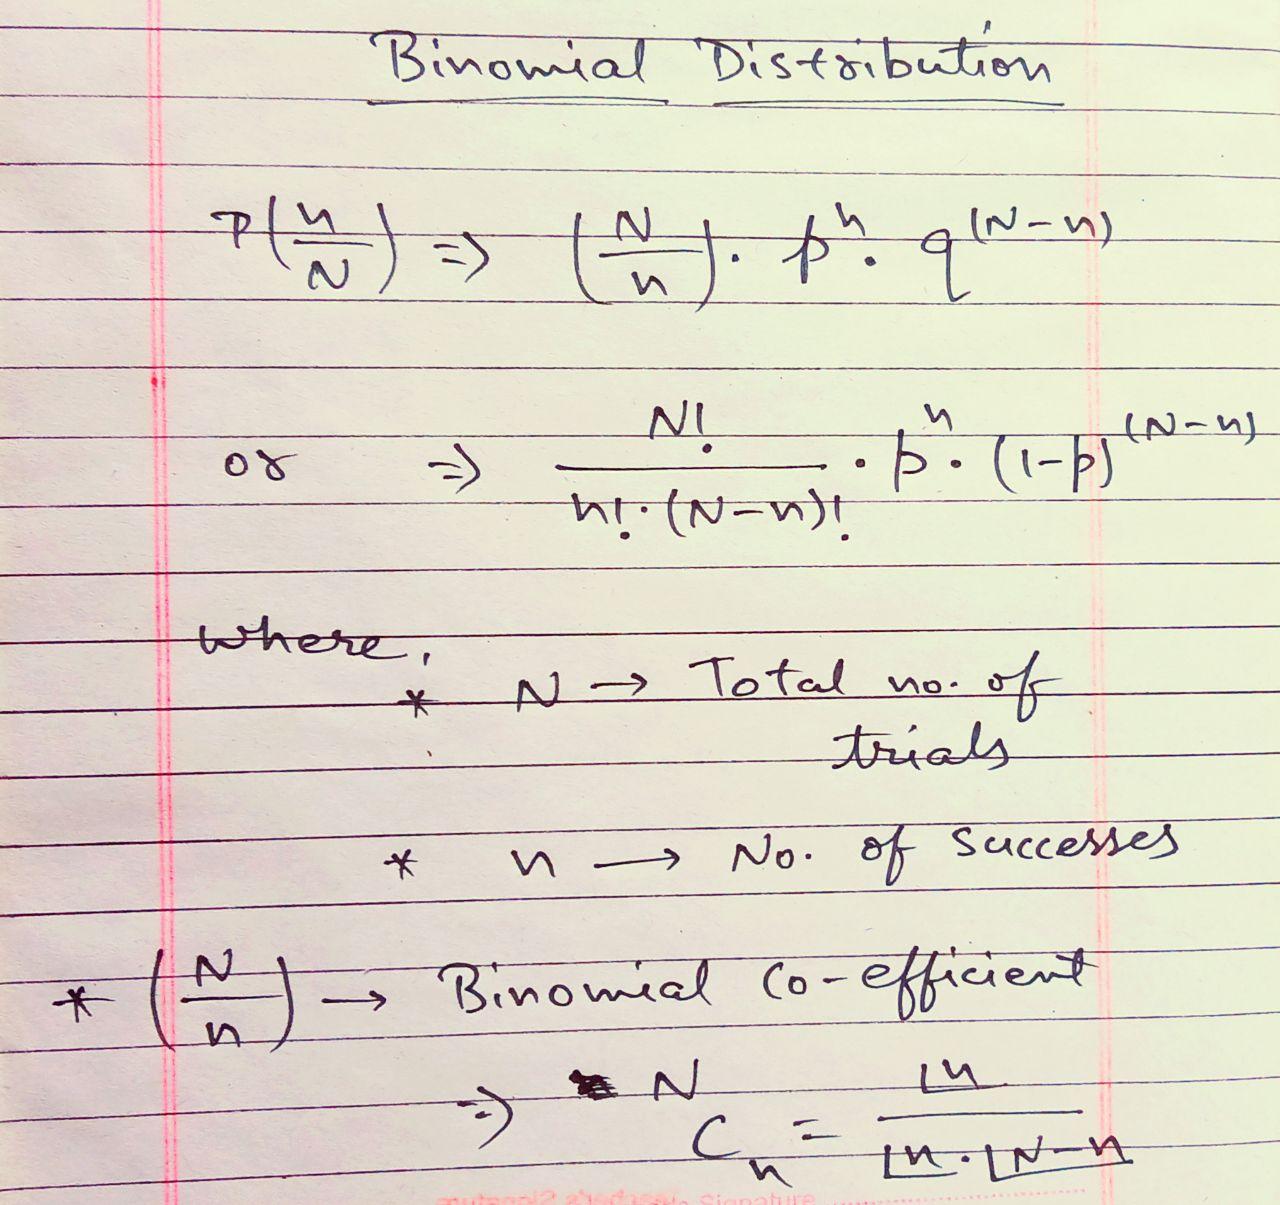 Binomial Distribution
P(n/N) => (N/n) . p^n . q^(N-n)
or => N! / n!.(N-n)! . p^n . (1-p)^(N-n)
where,
* N → Total no. of
trials
* n → No. of successes
* (N/n) → Binomial Co-efficient
=> N C n = ⌊n / ⌊n . ⌊N-n
Teacher's Signature